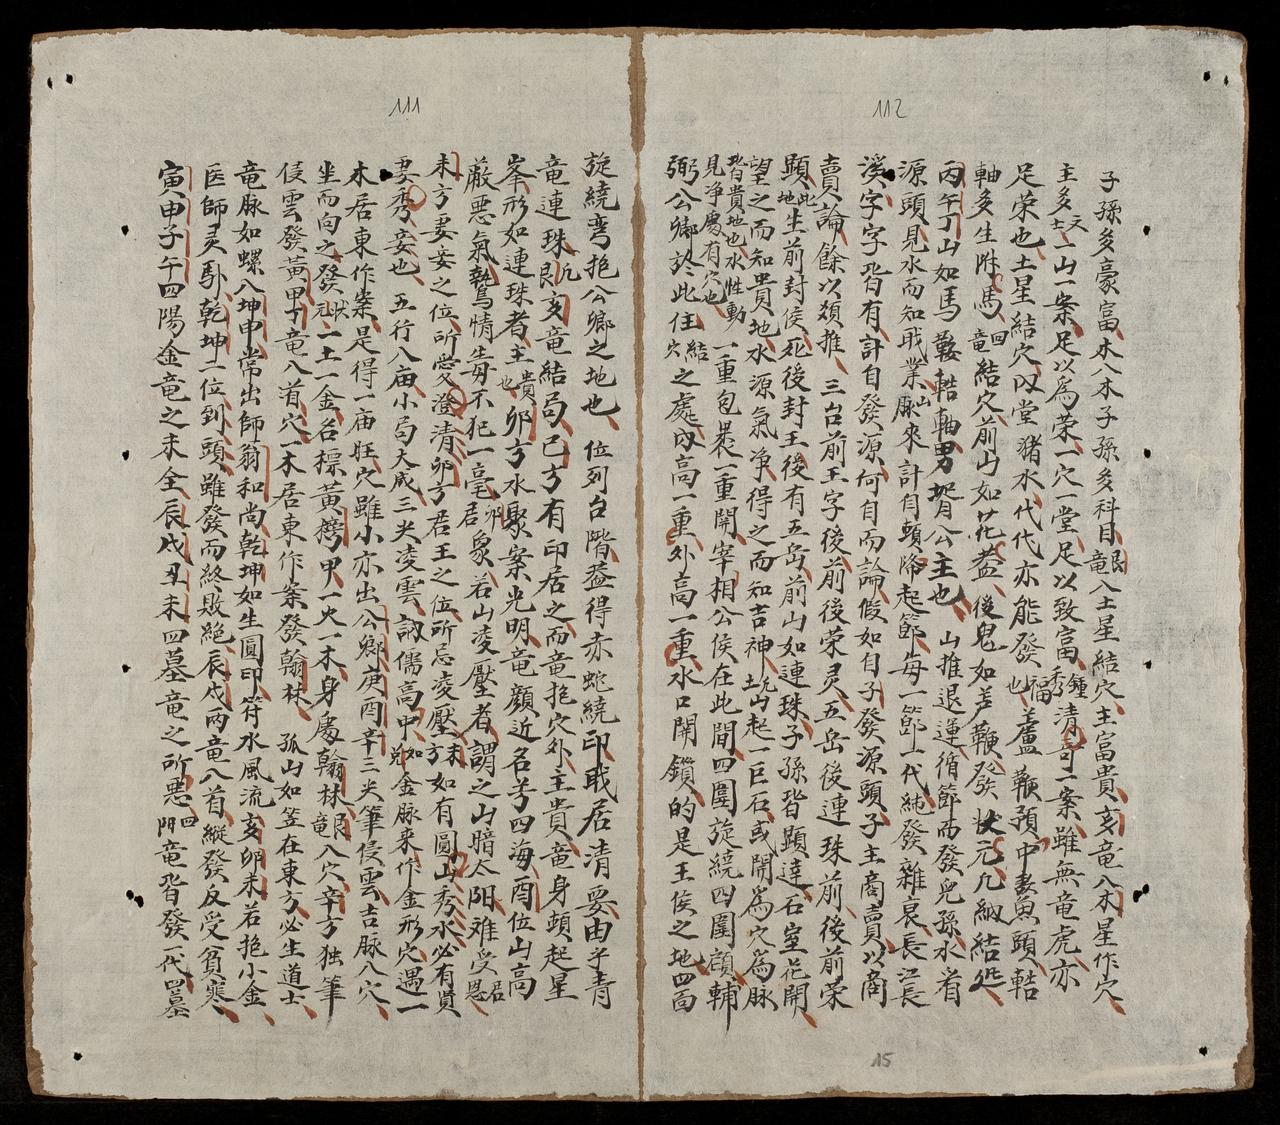 112
子孫多豪富木八木子孫多科目艮竜八土星結穴主富貴亥竜八木星作穴
主多文士一山一案足以為荣一穴一堂足以致富鍾秀清奇一案雖無竜虎亦
足荣也土星結穴内堂猪水代代亦能發福也蘆鞭預中数魚頭轄
軸多生駙馬四竜結穴前山如花盖後鬼如芦鞭發状元几納結処
丙午丁山如馬鞍轄軸男婿公主也 山推退運循節而發児孫水省
源頭見水而知戝業山脉来計自頭降起節每一節一代純發雜衰長江長
溪字字皆有計自發源何自而論假如自子發源頭子主商賣以商
賣論餘以類推 三台前王字後前後荣灵五岳後連珠前後前荣
顕此地生前封侯死後封王後有五岳前山如連珠子孫皆顕達石室花開
望之而知貴地水源氣净得之而知吉神凡土山起一巨石或開為穴為脉
皆貴地也水性動見净處有穴也一重包畏一重開宰相公侯在此間四圍旋繞四圍顧輔
弼公卿於此住結穴之處内高一重外高一重水口開鎖的是王侯之地四面
111
旋繞弯抱公卿之地也 位列台階盖得赤蛇繞印戝居清要由乎青
竜連珠凡艮亥竜結局巳方有印居之而竜抱穴外主貴竜身頭起星
峯形如連珠者主貴也卯方水聚案光明竜顔近名芳四海酉位山高
嚴惡氣鷙情毎不犯一毫卯居象若山凌壓者謂之山暗太阳难受居恩
未方妻妾之位所愛澄清卯方君王之位所忌凌壓未方如有圓山秀水必有賢
妻秀妾也 五行八庙小局大成三尖凌雲詞儒高中如兑金脉来作金形穴遇一
木居東作案是得一庙旺穴雖小亦出公卿庚酉辛三尖筆侵雲吉脉八穴
坐而向之發状元一土一金名標黄榜甲一火一木身處翰林艮竜八穴辛方独筆
侵雲發黄甲十竜八道穴一木居東作案發翰林 孤山如笠在東方必生道士
竜脉如螺八坤申常出師翁和尚乾坤如生圓印符水風流亥卯未若抱小金
医師灵卧乾坤二位到頭雖發而終敗絕辰戌两竜八首縦發反受貧寒
寅申子午四陽金竜之未全辰戌丑未四墓竜之所惡四門竜皆發一代四墓
15